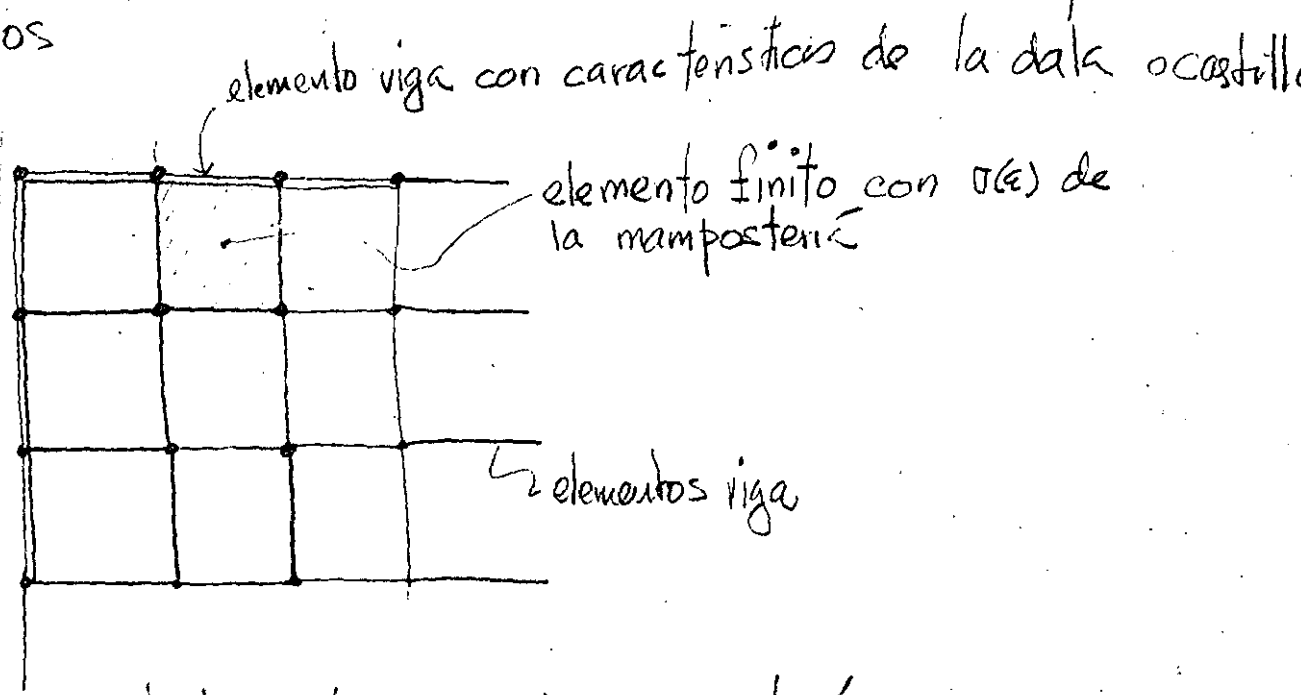 os
elemento viga con características de la dala o castillo
elemento finito con σ(ε) de
la mampostería
elementos viga